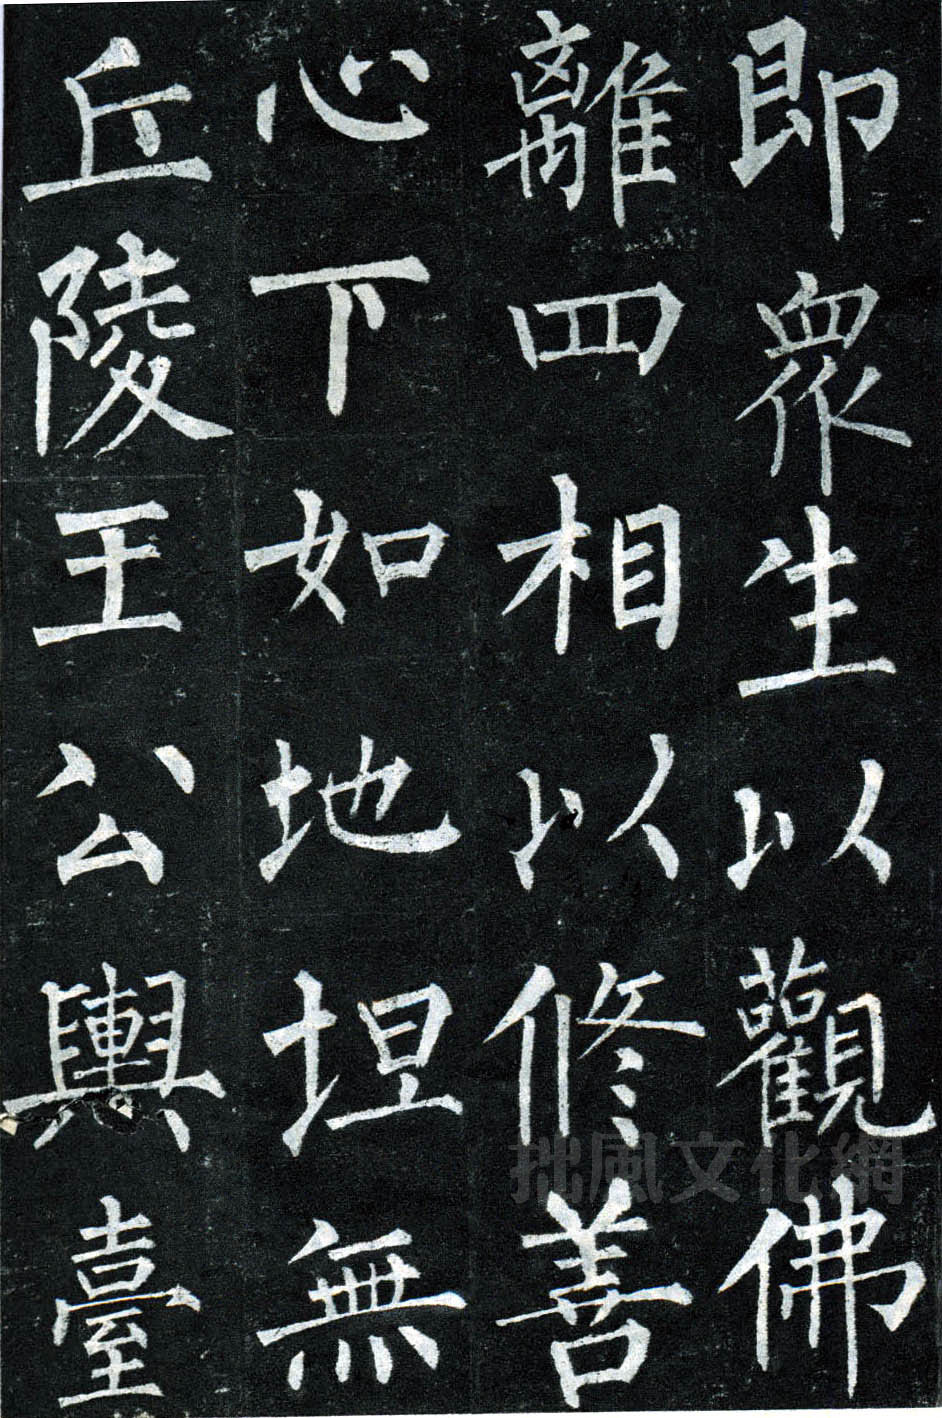 即衆生以觀佛
離四相以修善
心下如地坦無
丘陵王公輿臺
拙風文化網